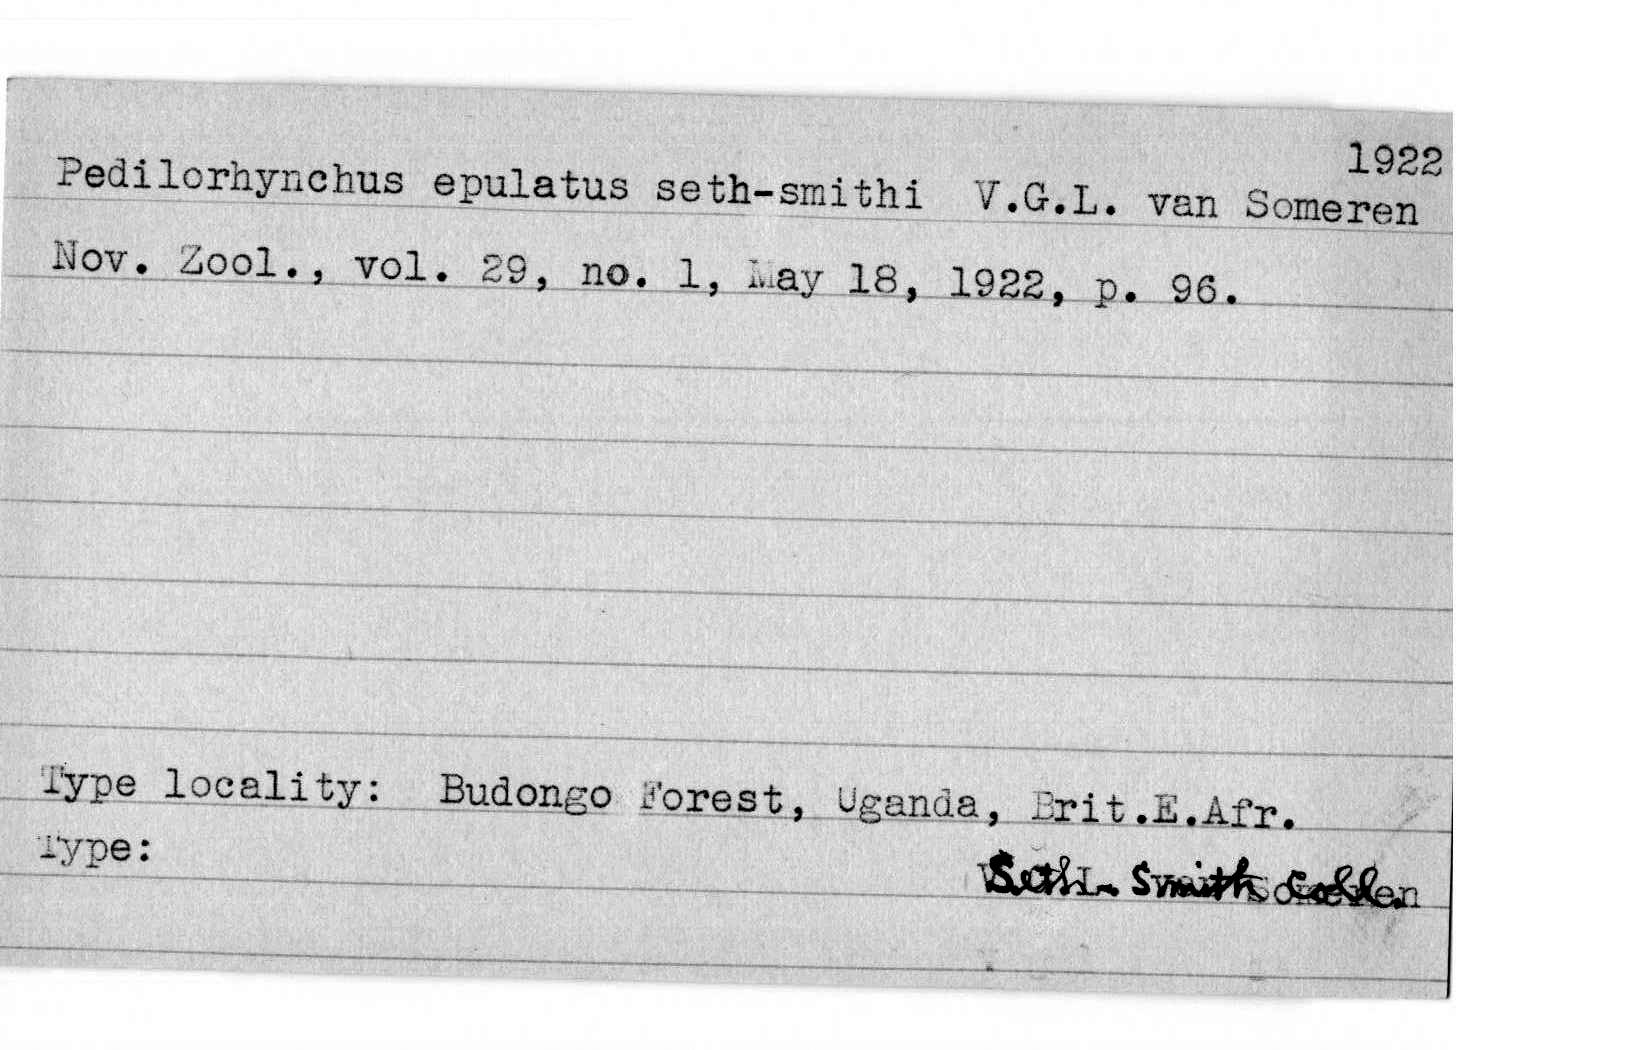 1922
Pedilorhynchus epulatus seth-smithi V.G.L. van Someren
Nov. Zool., vol. 29, no. 1, May 18, 1922, p. 96.
Type locality: Budongo Forest, Uganda, Brit.E.Afr.
Type:
Seth-Smith Coll.